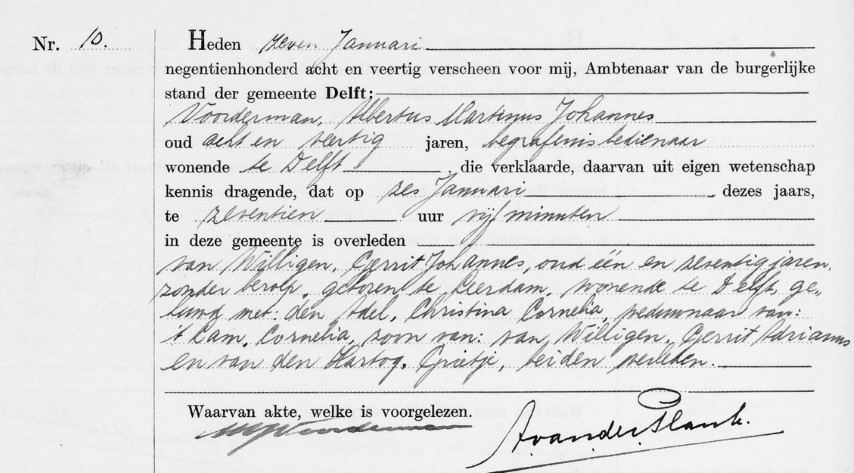 Nr. 10. Heden zeven Januari
negentienhonderd acht en veertig verscheen voor mij, Ambtenaar van de burgerlijke
stand der gemeente Delft:
Voorderman, Albertus Martinus Johannes
oud acht en veertig jaren, begrafenisbedienaar
wonende te Delft, die verklaarde, daarvan uit eigen wetenschap
kennis dragende, dat op zes Januari dezes jaars,
te zeventien uur vijf minuten
in deze gemeente is overleden
van Willigen, Gerrit Johannes, oud één en zeventig jaren,
zonder beroep, geboren te Leerdam, wonende te Delft, ge-
huwd met: den Adel, Christina Cornelia, weduwnaar van:
't Lam, Cornelia, zoon van: van Willigen, Gerrit Adrianus
en van den Hartog, Grietje, beiden overleden.
Waarvan akte, welke is voorgelezen.
AvanderPlank.